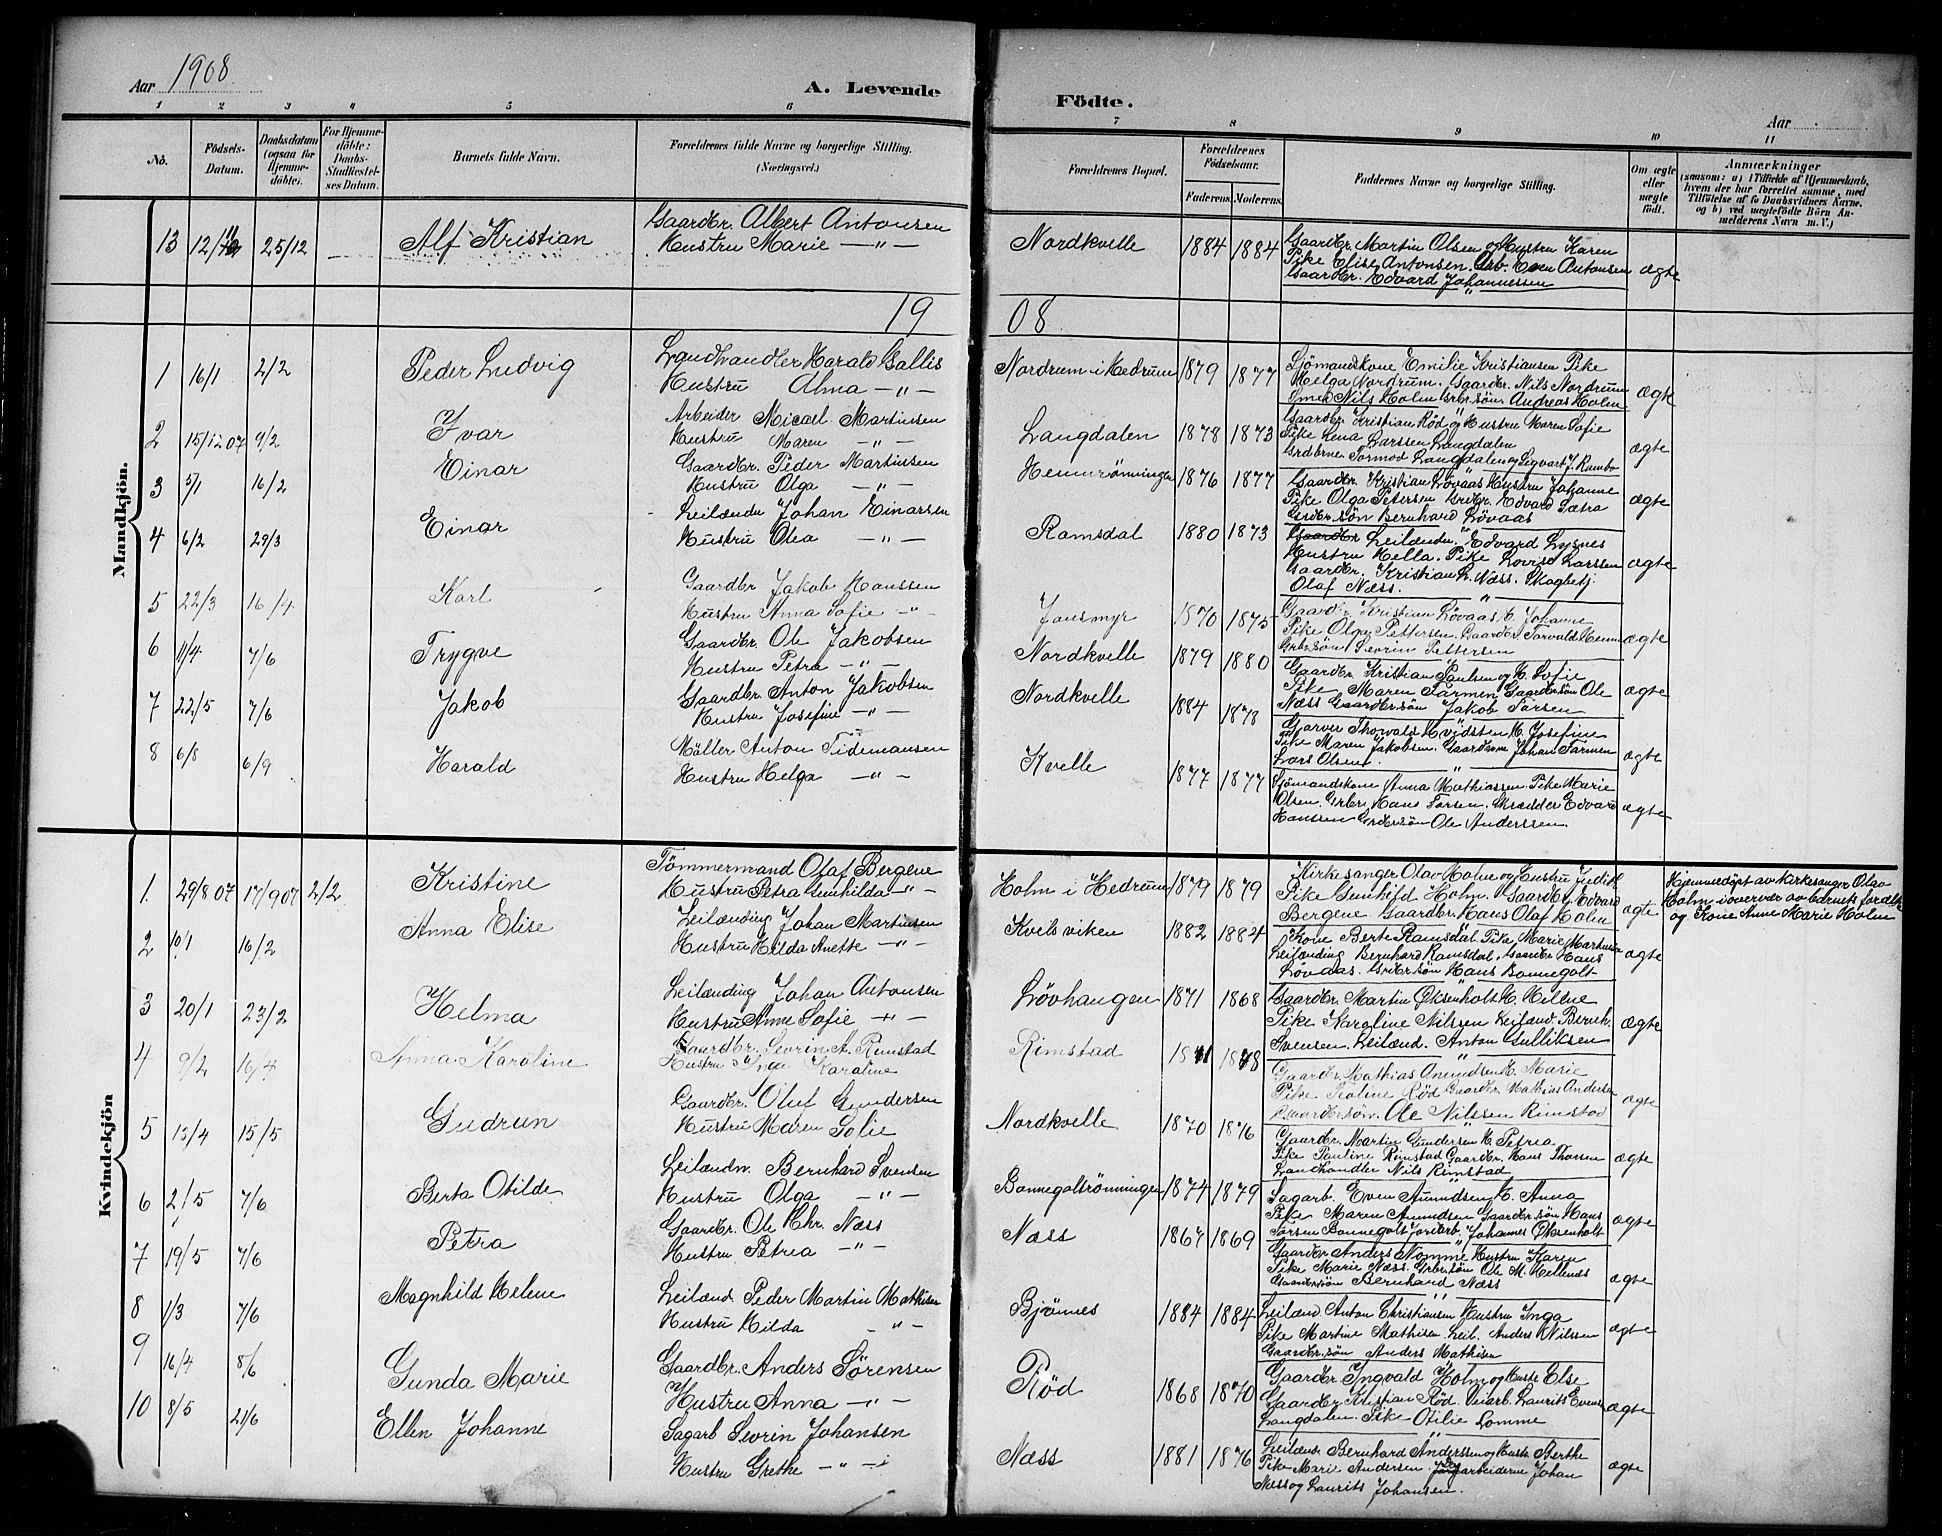 Aar 1908
A. Levende
Födte.
Aar
1 2 3 4 5 6
7 8 9 10 11
No.
Födsels-
Datum.
Daabsdatum
(ogsaa for
Hjemme-
döbte).
For Hjemme-
döbte:
Daabs-
Stadfæstel-
ses Datum.
Barnets fulde Navn.
Forældrenes fulde Navne og borgerlige Stilling.
(Næringsvei.)
Forældrenes Bopæl.
Forældrenes
Födselsaar.
Faderens. Moderens.
Faddernes Navne og borgerlige Stilling.
Om ægte
eller
uægte
födt.
Anmærkninger
(saasom: a) i Tilfælde af Hjemmedaab,
hvem der har forrettet samme, med
Tilföielse af to Daabsvidners Navne,
og b) ved uægtefödte Börn An-
melderens Navn m. V.)
13 12/11 25/12 Alf Kristian
Gaardbr. Albert Antonsen
Hustru Marie — „ —
Nordkvelle 1884 1884
Gaardbr. Martin Olsen og Hustru Karen
Pike Elise Antonsen. Arb. Even Antonsen
Gaardbr. Edvard Johannessen
ægte
19 08
Mandkjön.
1 16/1 2/2 Peder Ludvig
Landhandler Harald Gallis
Hustru Alma — „ —
Nordrum i Hedrum 1879 1877
Sjömandskone Emilie Kristiansen Pike
Helga Nordrum. Gaardbr. Nils Nordrum
Nils Holm Grbr.sön Andreas Holm
ægte
2 15/12 07 9/2 Ivar
Arbeider Micael Martinsen
Hustru Maren — „ —
Langdalen 1878 1873
Gaardbr. Kristian Röd og Hustru Maren Sofie
Pike Lena Larssen Langdalen
Grdbrne Tormod Langdalen og Sigvart J. Rambo
ægte
3 5/1 16/2 Einar
Gaardbr. Peder Martinsen
Hustru Olga — „ —
Hemrönningen 1876 1877
Gaardbr. Kristian Lövaas Hustru Johanne
Pike Olga Petersen Grdbr. Edvard Sætra
Grdbr.sön Bernhard Lövaas
ægte
4 6/2 29/3 Einar
Leilændn Johan Einarsen
Hustru Olea — „ —
Ramsdal 1880 1873
Gaardbr Leilændn. Edvard Lysnes
Hustru Hella. Pike Lovise Larssen
Gaardbr. Kristian L. Næss. Skogbetj.
Olaf Næss.
ægte
5 22/3 16/4 Karl
Gaardbr Jakob Hanssen
Hustru Anna Sofie — „ —
Jansmyr 1870 1875
Gaardbr Kristian Lövaas H. Johanne
Pike Olga Pettersen. Gaardbr Torvald Hemm
Grbr.sön Sevrin Pettersen
ægte
6 11/4 7/6 Trygve
Gaardbr. Ole Jakobsen
Hustru Petra — „ —
Nordkvelle 1879 1880
Gaardbr Kristian Paulsen og H. Sofie
Pike Maren Farmen Gaardbrsön Ole
Næss Gaardbr.sön Jakob Torsen
ægte
7 22/5 7/6 Jakob
Gaardbr Anton Jakobsen
Hustru Josefine — „ —
Nordkvelle 1884 1878
Garver Thorvald Kvidsten H. Josefine
Pike Maren Jakobsen. Gaardbrne Johan Farmen
Lars Olsen
ægte
8 6/8 6/9 Harald
Möller Anton Tidemansen
Hustru Helga — „ —
Kvelle 1877 1877
Sjömandskone Anna Mathiassen. Pike Marie
Olsen. Grbr. Hans Torsen. Skrædder Edvard
Hanssen Grdbrsön Ole Anderssen.
ægte
Kvindekjön
1. 29/8 07 17/9 07 2/2 Kristine
Tömmermand Olaf Bergene
Hustru Petra Gunhilda — „ —
Holm i Hedrum 1879 1879
Kirkesanger Olav Holm og Hustru Judith
Pike Gunhild Holm. Gaardbr Edvard
Bergene Gaardbr. Hans Olaf Holm
ægte
Hjemmedöpt av kirkesanger Olav
Holm i overvær av barnets forældre
og Kone Anne Marie Holm
2 10/1 16/2 Anna Elise
Leilænding Johan Martinsen
Hustru Hilda Anette — „ —
Kvelsviken 1882 1884
Kone Berte Ramsdal. Pike Marie Martinsen
Leilænding Bernhard Ramsdal. Gaardbr Hans
Lövaas. Grdbr.sön Hans Bonnegolt
ægte
3 20/1 23/2 Helma
Leilænding Johan Antonsen
Hustru Anne Sofie — „ —
Lövhaugen 1871 1868
Gaardbr. Martin Öksenholt H. Hilene
Pike Karoline Nilssen Leilænd Bernh.
Svensen. Leilænd. Anton Gulliksen
ægte
4 9/2 16/4 Anna Karoline
Gaardbr. Sevrin A. Rimstad
Hustru Inga Karoline
Rimstad
Gaardbr Mathias Amundsen H. Marie
Pike Röd Gaardbr. Mathias Andersen
Gaardbrsön. Ole Nilssen Rimstad
ægte
5 13/4 15/5 Gudrun
Gaardbr. Oluf Gundersen
Hustru Maren Sofie
Nordkvelle 1870 1876
Gaardbr. Martin Gundersen H. Petrea
Pike Pauline Rimstad Gaardbr. Hans Thorsen
Landhandler Nils Rimstad
ægte
6 2/5 7/6 Berta Otilde
Leilændn. Bernhard Svensen
Hustru Olga — „ —
Bonnegoltrönningen 1874 1879
Sagarb. Even Amundsen H. Anna
Pike Maren Amundsen Gaardbr.sön Hans
Torsen Bonnegolt Jordarb. Johannes Öksenholt
ægte
7 19/5 7/6 Petra
Gaardbr. Ole Chr. Næss
Hustru Petrea — „ —
Næss 1867 1869
Gaardbr Anders Nomme Hustru Karen
Pike Marie Næss. Grbr.sön Ole M. Hellenes
Gaardbrsön Bernhard Næss
ægte
8 1/3 7/6 Magnhild Helene
Leilænd. Peder Martin Mathisen
Hustru Hilda — „ —
Bjönnes 1884 1884
Leilænd Anton Christiansen Hustru Inga
Pike Martine Mathisen. Leil. Anders Nilssen
Gaardbr.sön Anders Mathisen
ægte
9 16/4 8/6 Gunda Marie
Gaardbr. Anders Sörensen
Hustru Anna — „ —
Röd 1868 1870
Gaardbr Ingvald Holm og Hustr Else
Gaardbr Kristian Röd. Veiarb. Laurits Evens
Langdalen. Pike Otilie Lomme
ægte
10 8/5 21/6 Ellen Johanne
Sagarb Sevrin Johansen
Hustru Grethe — „ —
Næss 1881 1876
Leilænd Bernhard Anderssen og Hustr Berthe
Pike Marie Andersen. Sagarbeiderne Johan
Næss og Laurits Johansen.
ægte